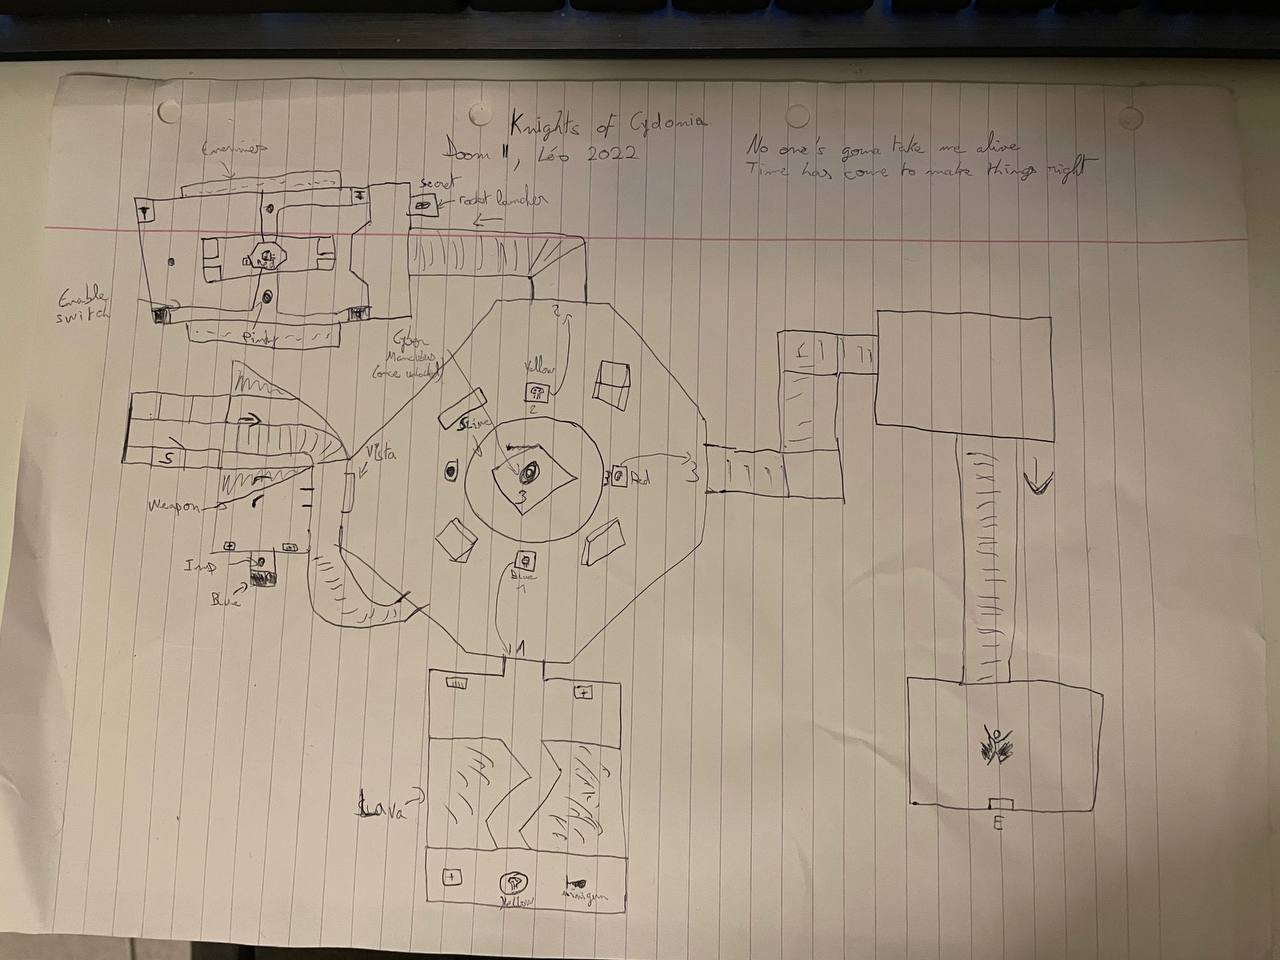 Knights of Cydonia
Doom II, Léo 2022
No one's gonna take me alive
Time has come to make things right
Enemies
secret
rocket launcher
Enable
switch
Pinky
Cyber
Mancubus
(once unlocked)
2
Yellow
2
Slime
Vista
3
3
Red
3
S
Weapon
Imp
Blue
Blue
1
1
Lava
Yellow
Minigun
E